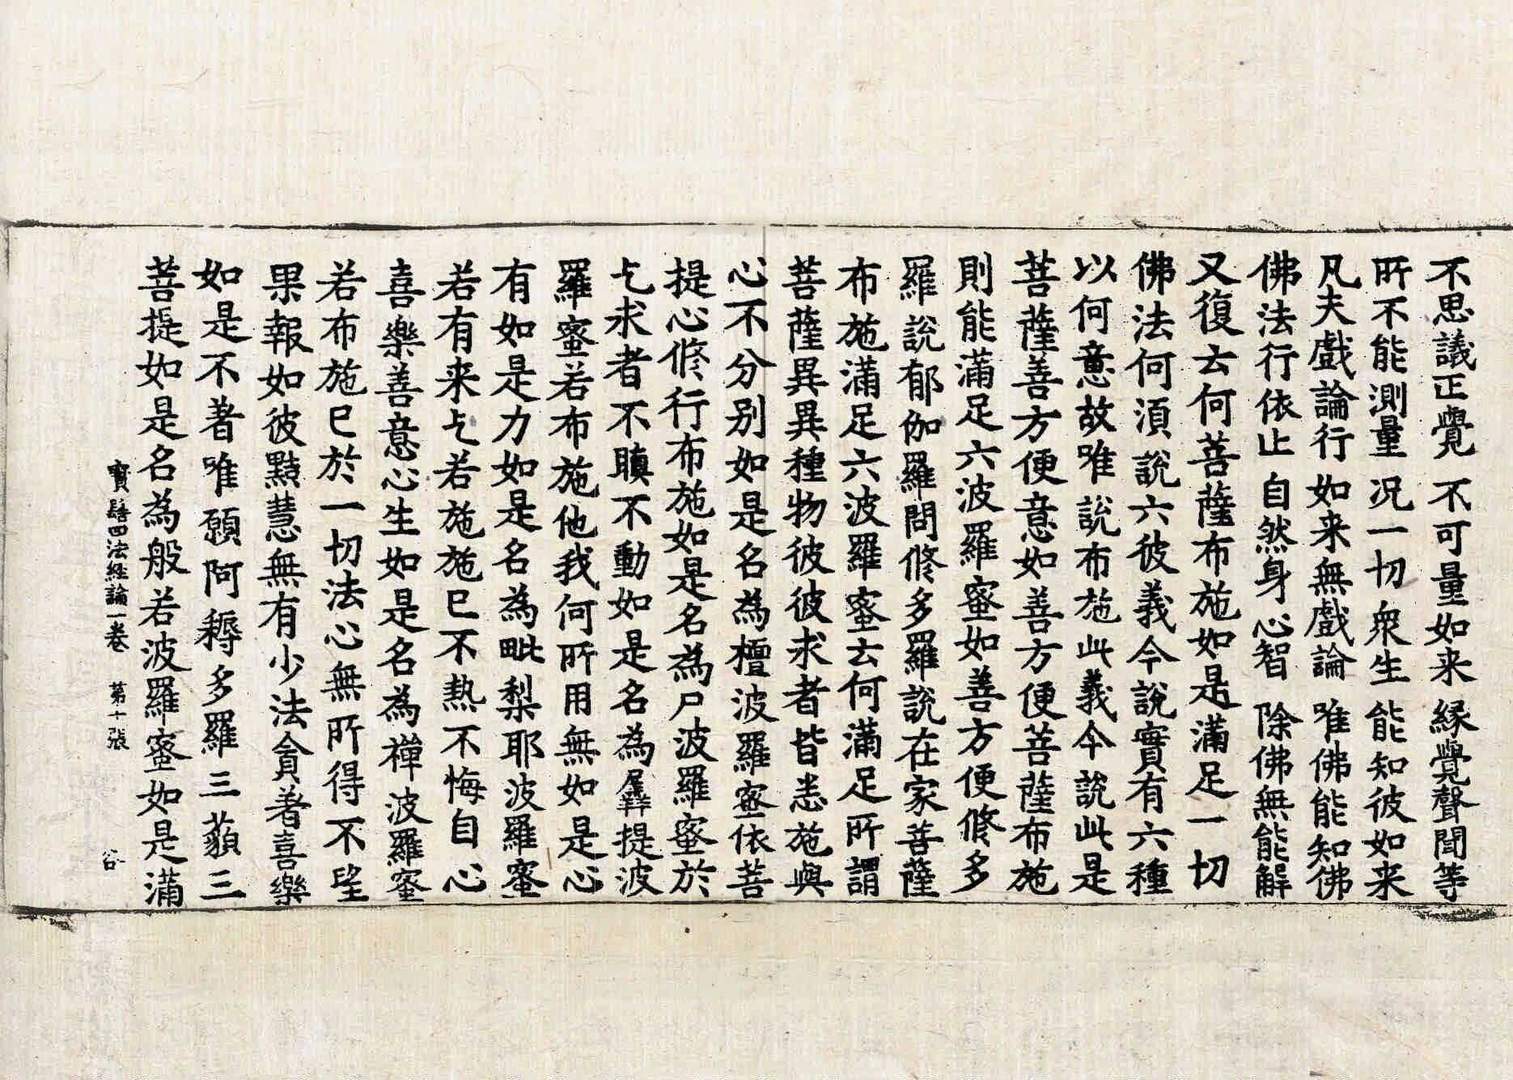 不思議正覺 不可量如来 縁覺聲聞等
所不能測量 况一切衆生 能知彼如来
凡夫戲論行 如来無戲論 唯佛能知佛
佛法行依止 自然身心智 除佛無能解
又復云何菩薩布施如是滿足一切
佛法何湏說六彼義今說實有六種
以何意故唯說布施此義今說此是
菩薩善方便意如善方便菩薩布施
則能滿足六波羅蜜如善方便修多
羅說郁伽羅問修多羅說在家菩薩
布施滿足六波羅蜜云何滿足所謂
菩薩異異種物彼彼求者皆悉施與
心不分别如是名為檀波羅蜜依菩
提心修行布施如是名為尸波羅蜜於
乞求者不瞋不動如是名為羼提波
羅蜜若布施他我何所用無如是心
有如是力如是名為毗梨耶波羅蜜
若有来乞若施施已不熱不悔自心
喜樂善意心生如是名為禪波羅蜜
若布施已於一切法心無所得不望
果報如彼黠慧無有少法貪著喜樂
如是不著唯願阿耨多羅三藐三
菩提如是名為般若波羅蜜如是滿
寶髻四法經論一卷 第十張 谷